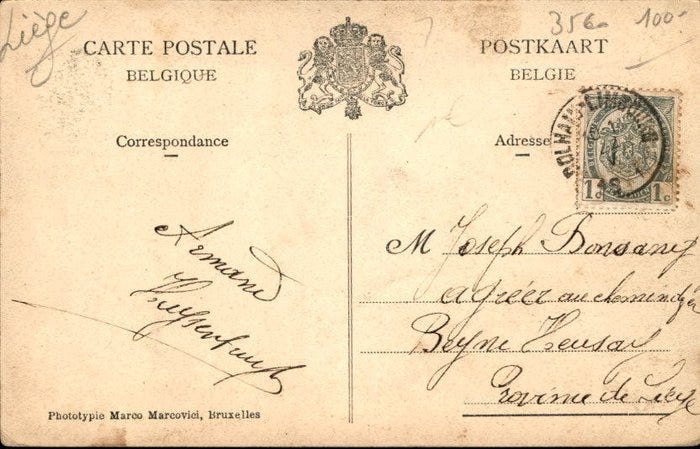 Liège
356-
100-
CARTE POSTALE
BELGIQUE
POSTKAART
BELGIE
Correspondance
Adresse
DOLHAIN-LIMBOURG
1c 1c
Armand
M Joseph
agréer au chemin
Beyne Heusay
Province de Liége
Phototypie Marco Marcovici, Bruxelles